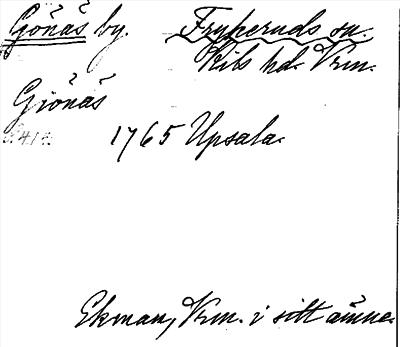 Gönäs by. Frykeruds sn.
Kils hd. Vrm.
Giönäs
1765 Upsala.
Ekman, Vrm. i sitt ämne.